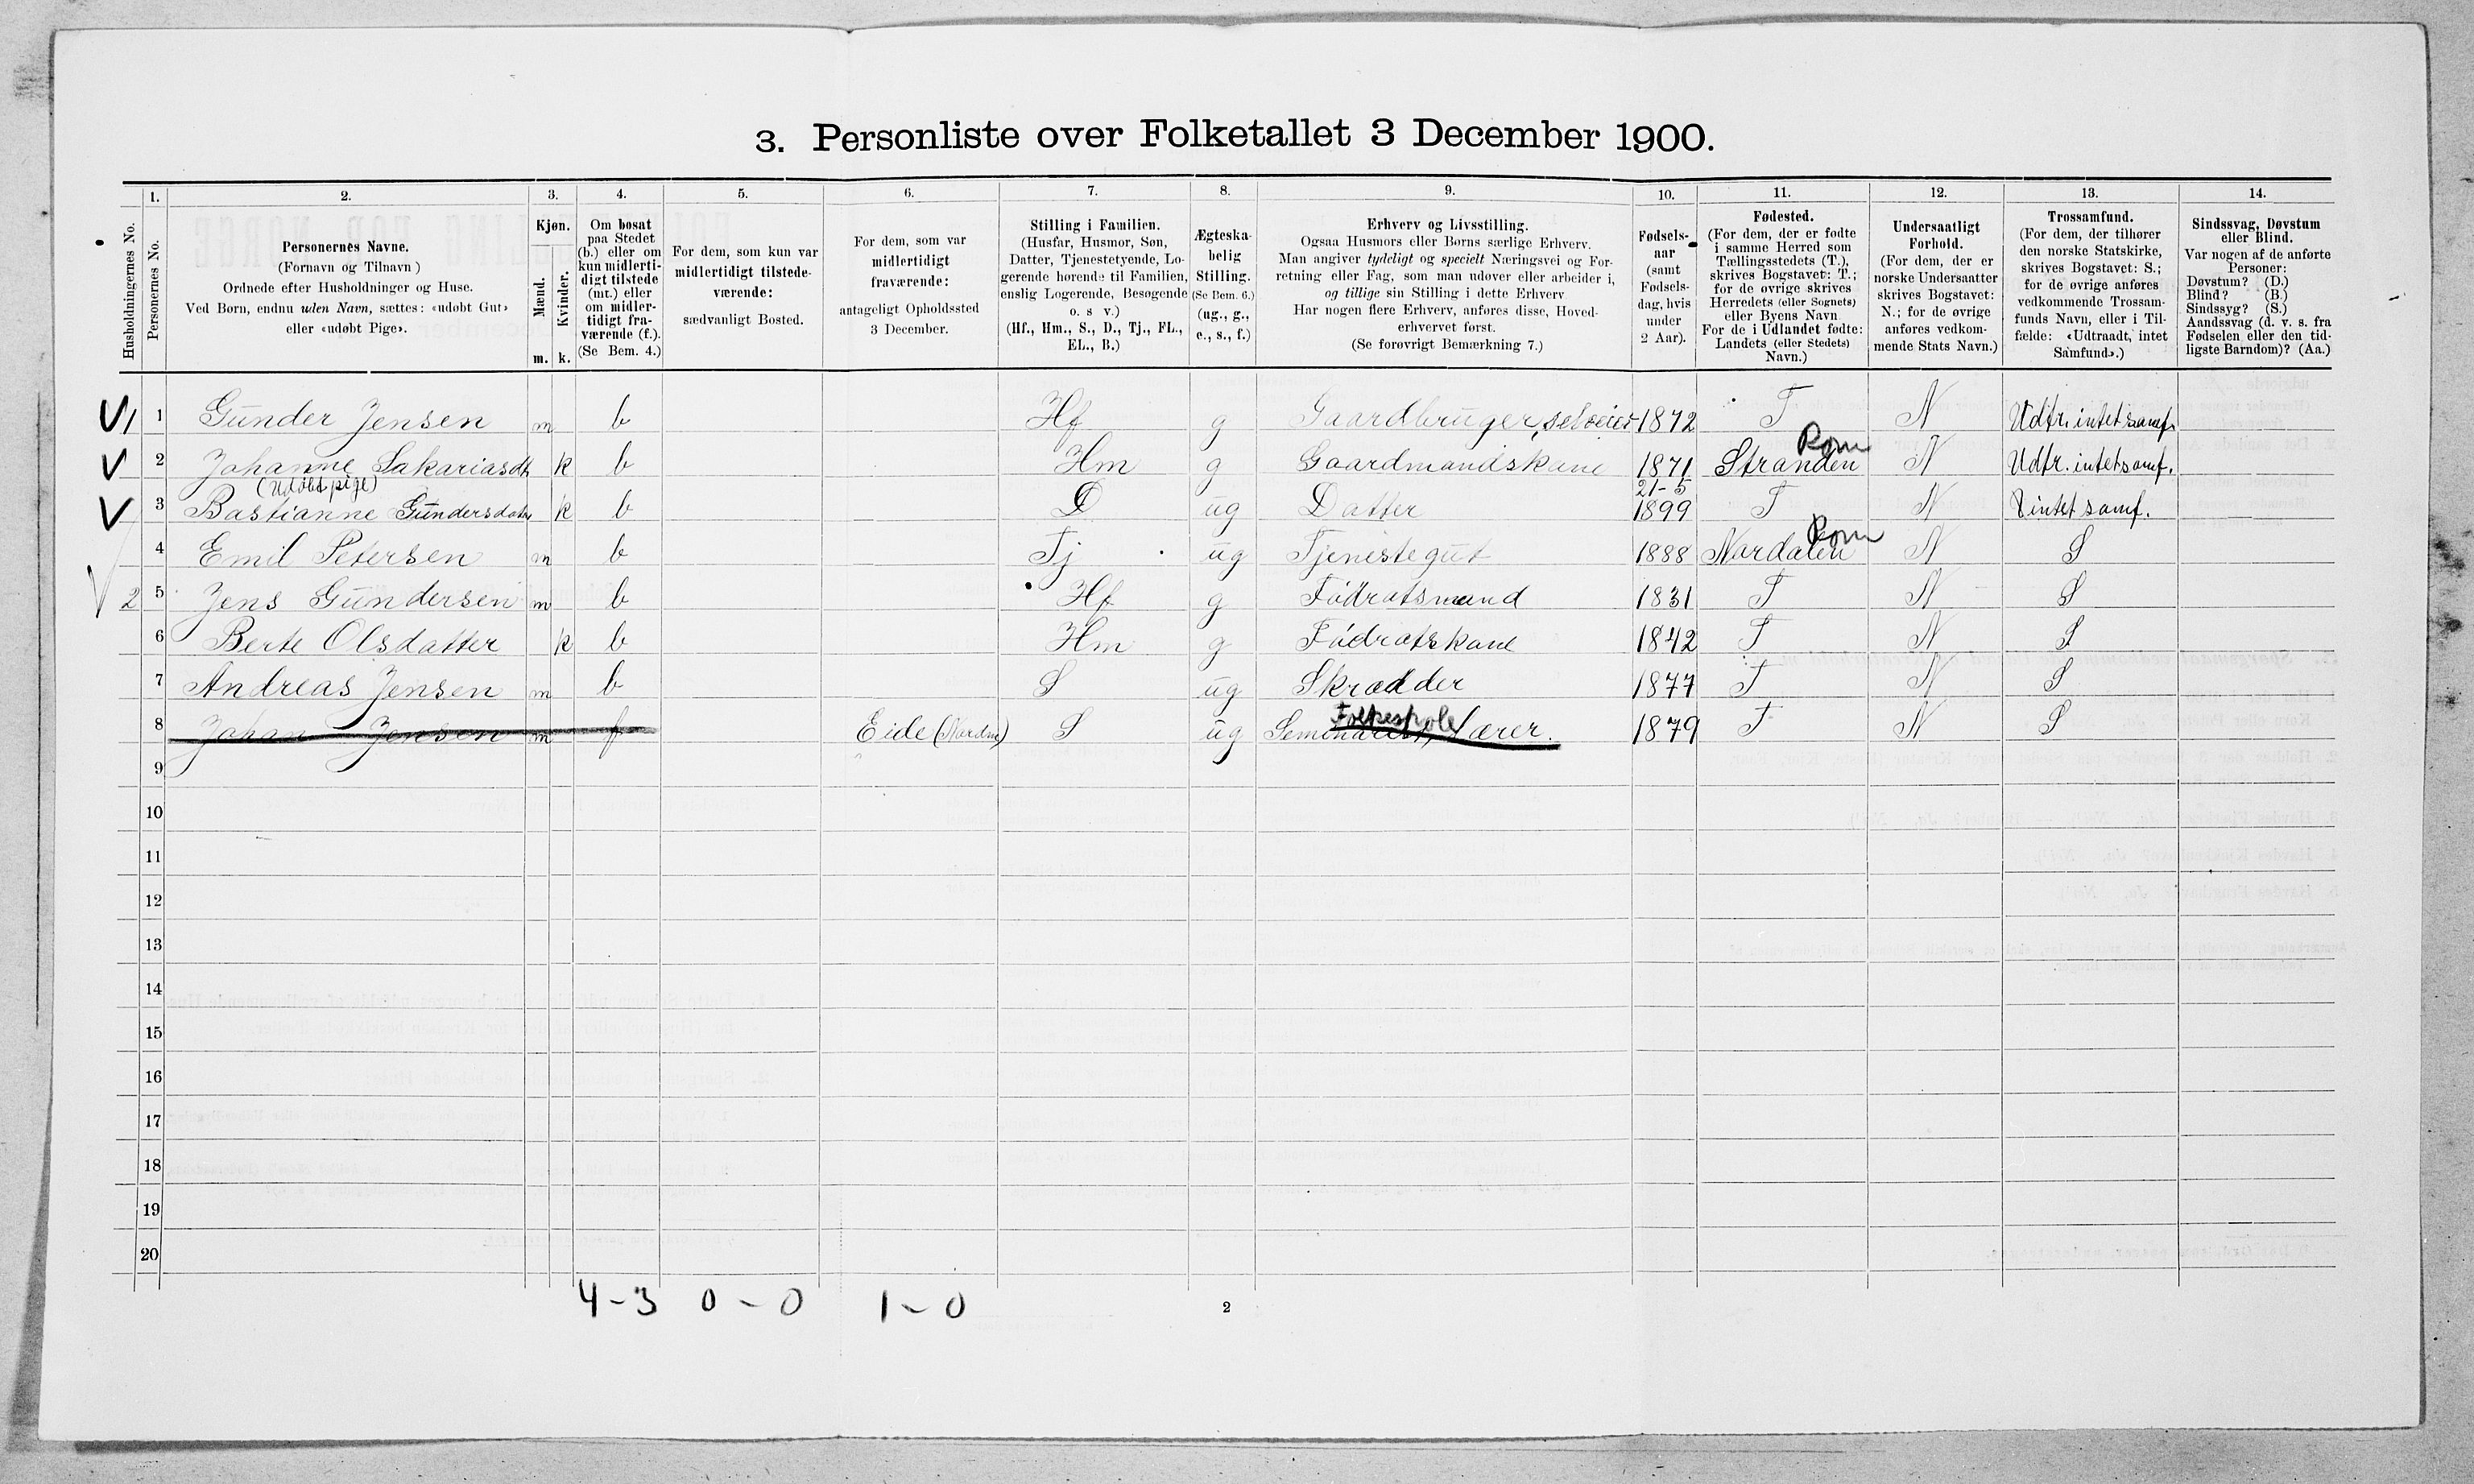 3. Personliste over Folketallet 3 December 1900.
1. 2. 3. 4. 5. 6. 7. 8. 9. 10. 11. 12. 13. 14.
Husholdningernes No.
Personernes No.
Personernes Navne.
(Fornavn og Tilnavn)
Ordnede efter Husholdninger og Huse.
Ved Børn, endnu uden Navn, sættes: «udøbt Gut»
eller «udøbt Pige».
Kjøn.
Mænd.
Kvinder.
m. k.
Om bosat
paa Stedet
(b.) eller om
kun midlerti-
digt tilstede
(mt.) eller
om midler-
tidigt fra-
værende (f.).
(Se Bem. 4.)
For dem, som kun var
midlertidigt tilstede-
værende:
sædvanligt Bosted.
For dem, som var
midlertidigt
fraværende:
antageligt Opholdssted
3 December.
Stilling i Familien.
(Husfar, Husmor, Søn,
Datter, Tjenestetyende, Lo-
gerende hørende til Familien,
enslig Logerende, Besøgende
o. s v.)
(Hf., Hm., S., D., Tj., FL.,
EL., B.)
Ægteska-
belig
Stilling.
(Se Bem. 6.)
(ug., g.,
e., s., f.)
Erhverv og Livsstilling.
Ogsaa Husmors eller Børns særlige Erhverv.
Man angiver tydeligt og specielt Næringsvei og For-
retning eller Fag, som man udøver eller arbeider i,
og tillige sin Stilling i dette Erhverv
Har nogen flere Erhverv, anføres disse, Hoved-
erhvervet først.
(Se forøvrigt Bemærkning 7.)
Fødsels-
aar
(samt
Fødsels-
dag, hvis
under
2 Aar).
Fødested.
(For dem, der er fødte
i samme Herred som
Tællingsstedets (T.),
skrives Bogstavet: T.;
for de øvrige skrives
Herredets (eller Sognets)
eller Byens Navn
For de i Udlandet fødte:
Landets (eller Stedets)
Navn.)
Undersaatligt
Forhold.
(For dem, der er
norske Undersaatter
skrives Bogstavet:
N.; for de øvrige
anføres vedkom-
mende Stats Navn.)
Trossamfund.
(For dem, der tilhører
den norske Statskirke,
skrives Bogstavet: S.;
for de øvrige anføres
vedkommende Trossam-
funds Navn, eller i Til-
fælde: «Udtraadt, intet
Samfund».)
Sindssvag, Døvstum
eller Blind.
Var nogen af de anførte
Personer:
Døvstum? (D.)
Blind? (B.)
Sindssyg? (S.)
Aandssvag (d. v. s. fra
Fødselen eller den tid-
ligste Barndom)? (Aa.)
1 1 Gunder Jensen m b Hf g Gaardbruger, selveier 1872 T N Udtr. intet samf.
Rom
2 Johanne Sakariasdt. k b Hm g Gaardmandskone 1871 Stranden N Udtr. intet samf.
(Udøbt pige) 21-5
3 Bastianne Gundersdatr k b D ug Datter 1899 T N intet samf.
Rom
4 Emil Petersen m b Tj ug Tjenestegut 1888 Nordalen N S
2 5 Jens Gundersen m b Hf g Födraadsmand 1831 T N S
6 Berte Olsdatter k b Hm g Födraadskone 1842 T N S
7 Andreas Jensen m b S ug Skrædder 1877 T N S
Folkeskole
8 Johan Jensen m f Eide (Nordm) S ug Seminarist, Lærer. 1879 T N S
9
10
11
12
13
14
15
16
17
18
19
20
4-3 0-0 1-0
2